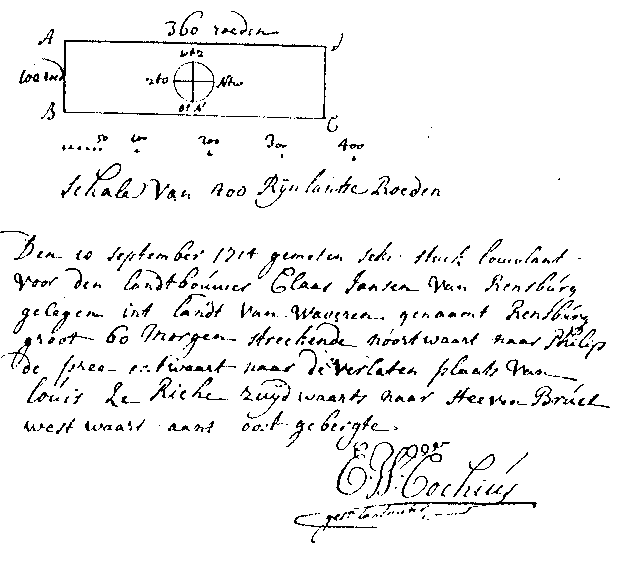 360 roeden
A
D
100 roed
B
C
50 100 200 300 400
Schale van 400 Rijnlantse Roeden
Den 10 september 1714 gemeten seker stuck bouwlant
voor den landtbouwer Claas Jansen van Rensburg
gelegen int landt van waveren genaamt Rensburg
groot 60 Morgen streckende noortwaart naar Philip
de pree oostwaart naar de verlaten plaats van
Louis Le Riche zuydwaarts naar Steven Bruel
westwaart aant oost gebergte.
E. W. Cochius